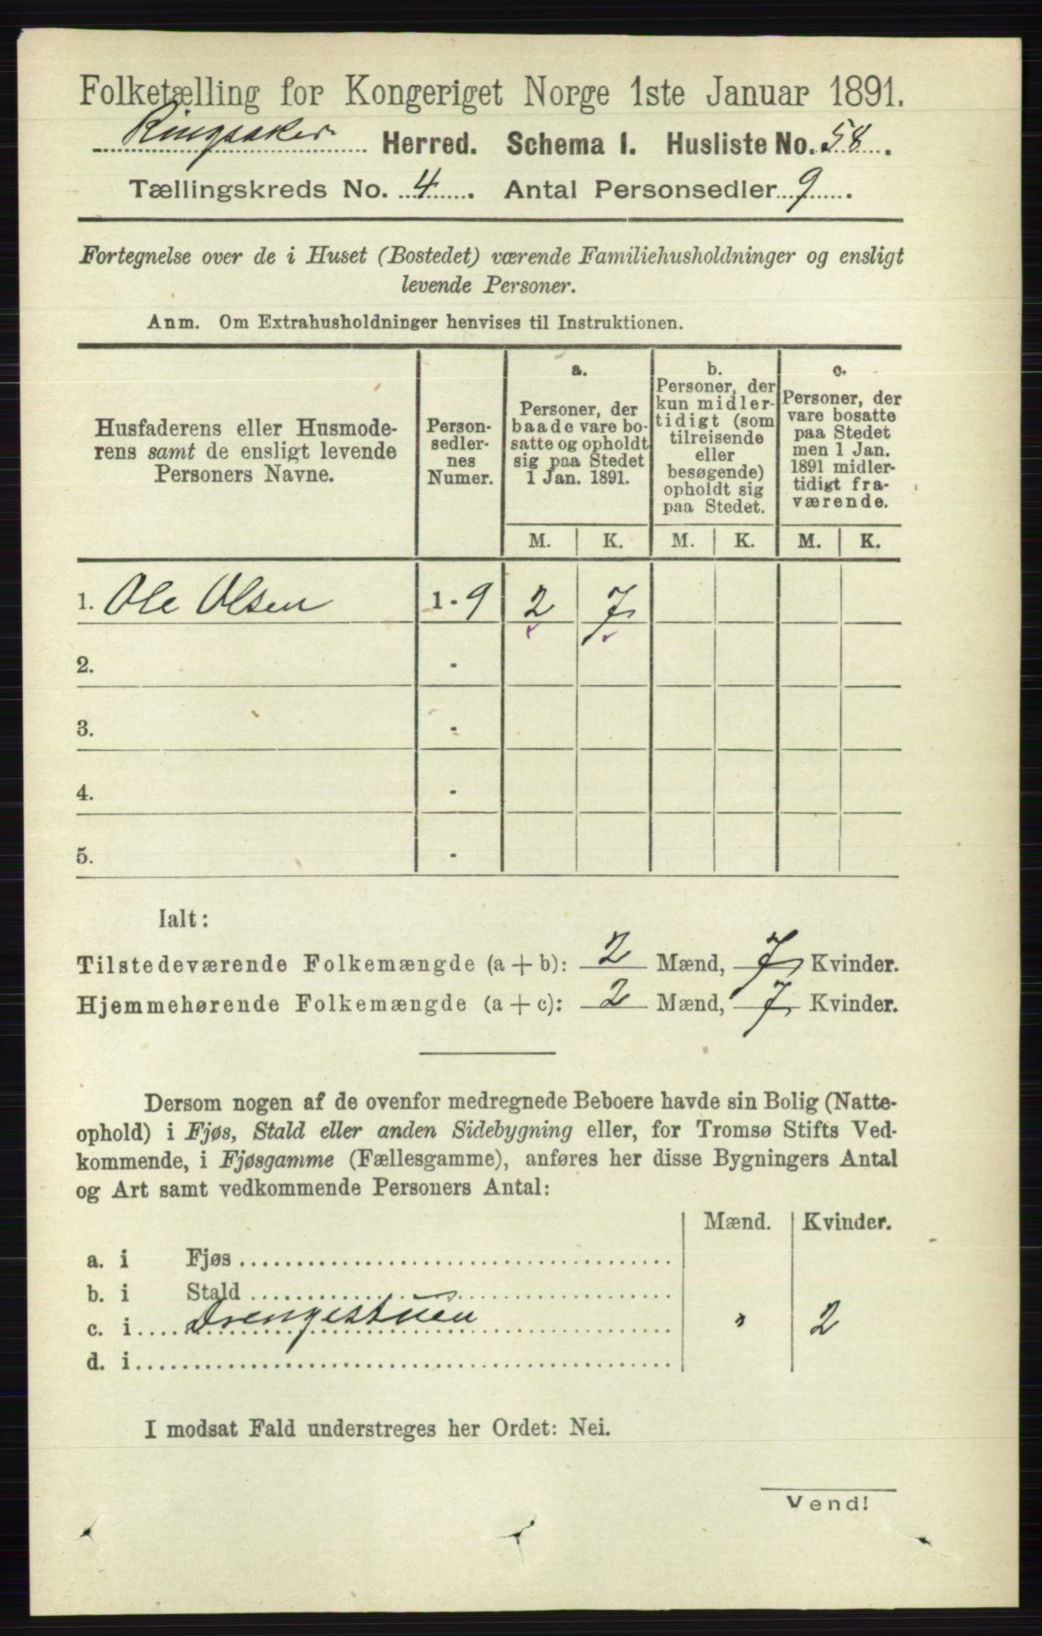 Folketælling for Kongeriget Norge 1ste Januar 1891.
Ringsaker Herred. Schema I. Husliste No. 58.
Tællingskreds No. 4. Antal Personsedler 9.
Fortegnelse over de i Huset (Bostedet) værende Familiehusholdninger og ensligt
levende Personer.
Anm. Om Extrahusholdninger henvises til Instruktionen.
Husfaderens eller Husmode-
rens samt de ensligt levende
Personers Navne.
Person-
sedler-
nes
Numer.
a.
Personer, der
baade vare bo-
satte og opholdt
sig paa Stedet
1 Jan. 1891.
b.
Personer, der
kun midler-
tidigt (som
tilreisende
eller
besøgende)
opholdt sig
paa Stedet.
c.
Personer, der
vare bosatte
paa Stedet
men 1 Jan.
1891 midler-
tidigt fra-
værende.
M. K. M. K. M. K.
1. Ole Olsen 1-9 2 7
2. -
3. -
4. -
5. -
Ialt:
Tilstedeværende Folkemængde (a + b): 2 Mænd, 7 Kvinder.
Hjemmehørende Folkemængde (a + c): 2 Mænd, 7 Kvinder.
Dersom nogen af de ovenfor medregnede Beboere havde sin Bolig (Natte-
ophold) i Fjøs, Stald eller anden Sidebygning eller, for Tromsø Stifts Ved-
kommende, i Fjøsgamme (Fællesgamme), anføres her disse Bygningers Antal
og Art samt vedkommende Personers Antal:
Mænd. Kvinder.
a. i Fjøs
b. i Stald
c. i Drengestuen " 2
d. i
I modsat Fald understreges her Ordet: Nei.
Vend!